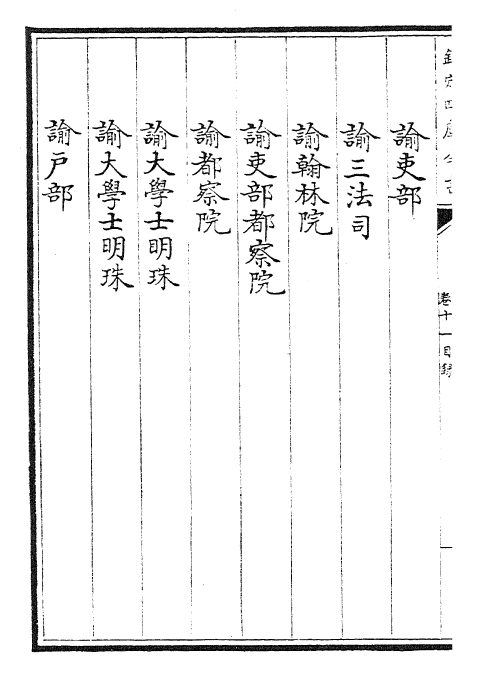 欽定四庫全書
卷十一目錄
諭吏部
諭三法司
諭翰林院
諭吏部都察院
諭都察院
諭大學士明珠
諭大學士明珠
諭戶部